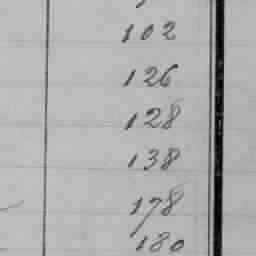 102
126
128
138
178
180